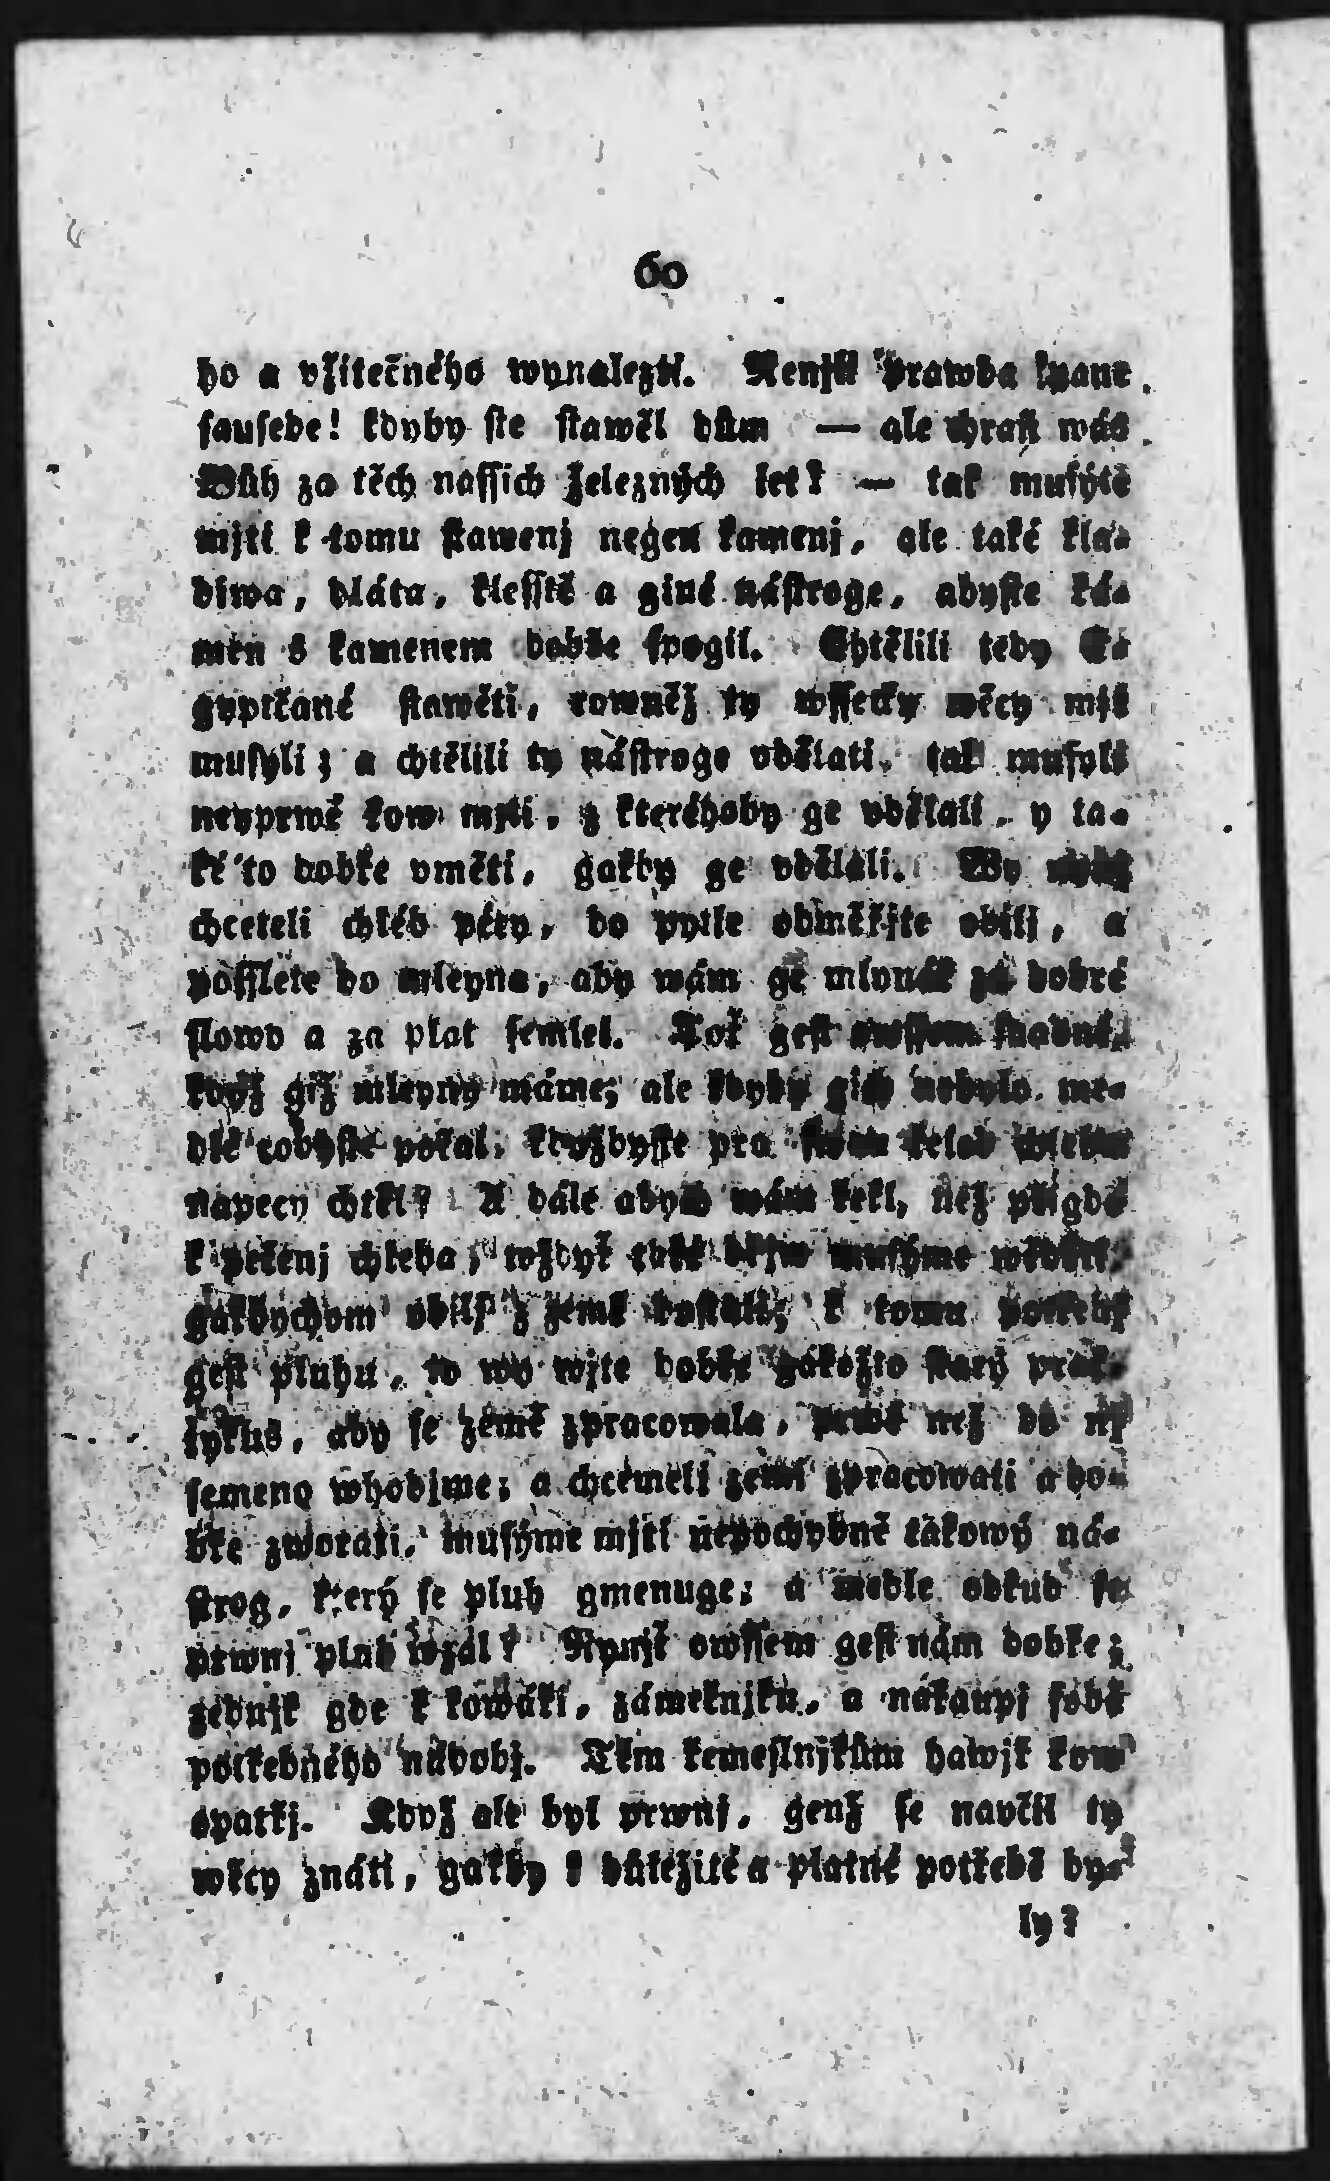 60
ho a vžitečného wynalezti. Nenjli prawda pane
sausede! kdyby ste stawěl dům — ale chraň wás
Bůh za těch nassich železných let? — tak musýtě
mjti k tomu stawenj negen kamenj, ale také kla-
diwa, dláta, klesstě a giné nástroge, abyste ká-
men s kamenem dobře spogil. Chtělili tedy E-
gypťané stawěti, rowněž ty wssecky wěcy mjti
musyli; a chtělili ty nástroge vdělati, tak musyli
neyprwé kow mjti, z kteréhoby ge vdělali, y ta-
ké to dobře vměti, gakby ge vdělali. Wy
chceteli chléb pécy, do pytle odměřjte obilj, a
posslete do mleyna, aby wám ge mlynář za dobré
slowo a za plat semlel. Toť gest owssem snadné,
když giž mleyny máme; ale kdyby gich nebylo, me-
dle cobyste počal, kdyžbyste pro
napecy chtěl? A dále abych wám řekl, než přigde
k pečenj chleba, wždyť také dřjw musýme wěděti,
gakbychom obilj z země dostali; k tomu potřebj
gest pluhu, to wy wjte dobře gakožto starý prak-
tykus, aby se země zpracowala, prwé než do nj
semeno whodjme; a chcemeli zemi zpracowati a do-
bře zworati, musýme mjti nepochybně takowý ná-
strog, který se pluh gmenuge; a medle odkud se
prwnj pluh wzal? Nynjť owssem gest nám dobře;
gednjk gde k kowáři, zámečnjku, a nakaupj sobě
potřebného nádobj. Těm řemeslnjkům hawjř kow
opatřj. Kdož ale byl prwnj, genž se naučil ty
wěcy znáti, gakby k důležité a platné potřebě by-
ly?